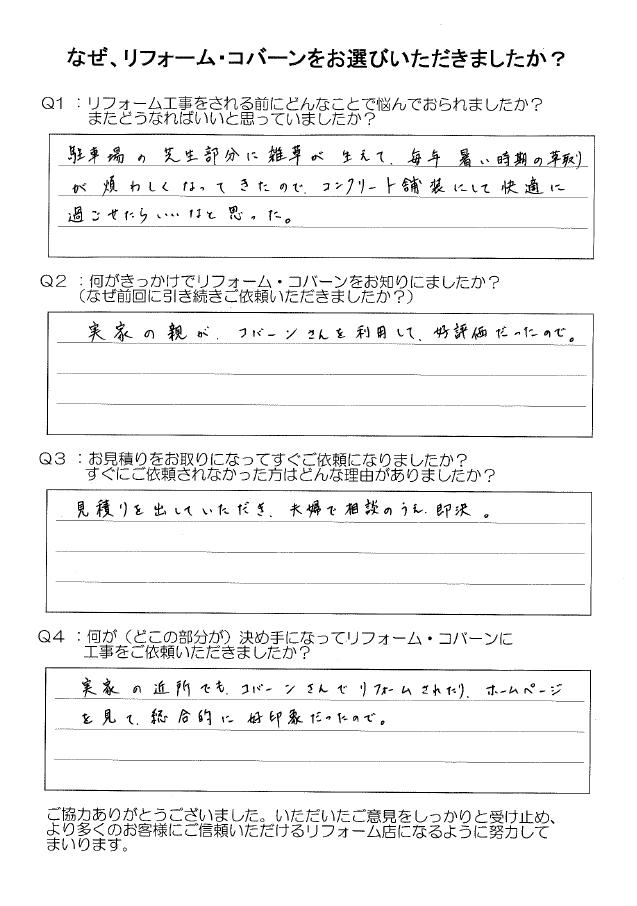 なぜ、リフォーム・コバーンをお選びいただきましたか？
Q1 ：リフォーム工事をされる前にどんなことで悩んでおられましたか？
またどうなればいいと思っていましたか？
駐車場の芝生部分に雑草が生えて、毎年暑い時期の草取り
が煩わしくなってきたので、コンクリート舗装にして快適に
過ごせたらいいなと思った。
Q2 ：何がきっかけでリフォーム・コバーンをお知りにましたか？
（なぜ前回に引き続きご依頼いただきましたか？）
実家の親が、コバーンさんを利用して、好評価だったので。
Q3 ：お見積りをお取りになってすぐご依頼になりましたか？
すぐにご依頼されなかった方はどんな理由がありましたか？
見積りを出していただき、夫婦で相談のうえ、即決。
Q4 ：何が（どこの部分が）決め手になってリフォーム・コバーンに
工事をご依頼いただきましたか？
実家の近所でも、コバーンさんでリフォームされたり、ホームページ
を見て、総合的に好印象だったので。
ご協力ありがとうございました。いただいたご意見をしっかりと受け止め、
より多くのお客様にご信頼いただけるリフォーム店になるように努力して
まいります。